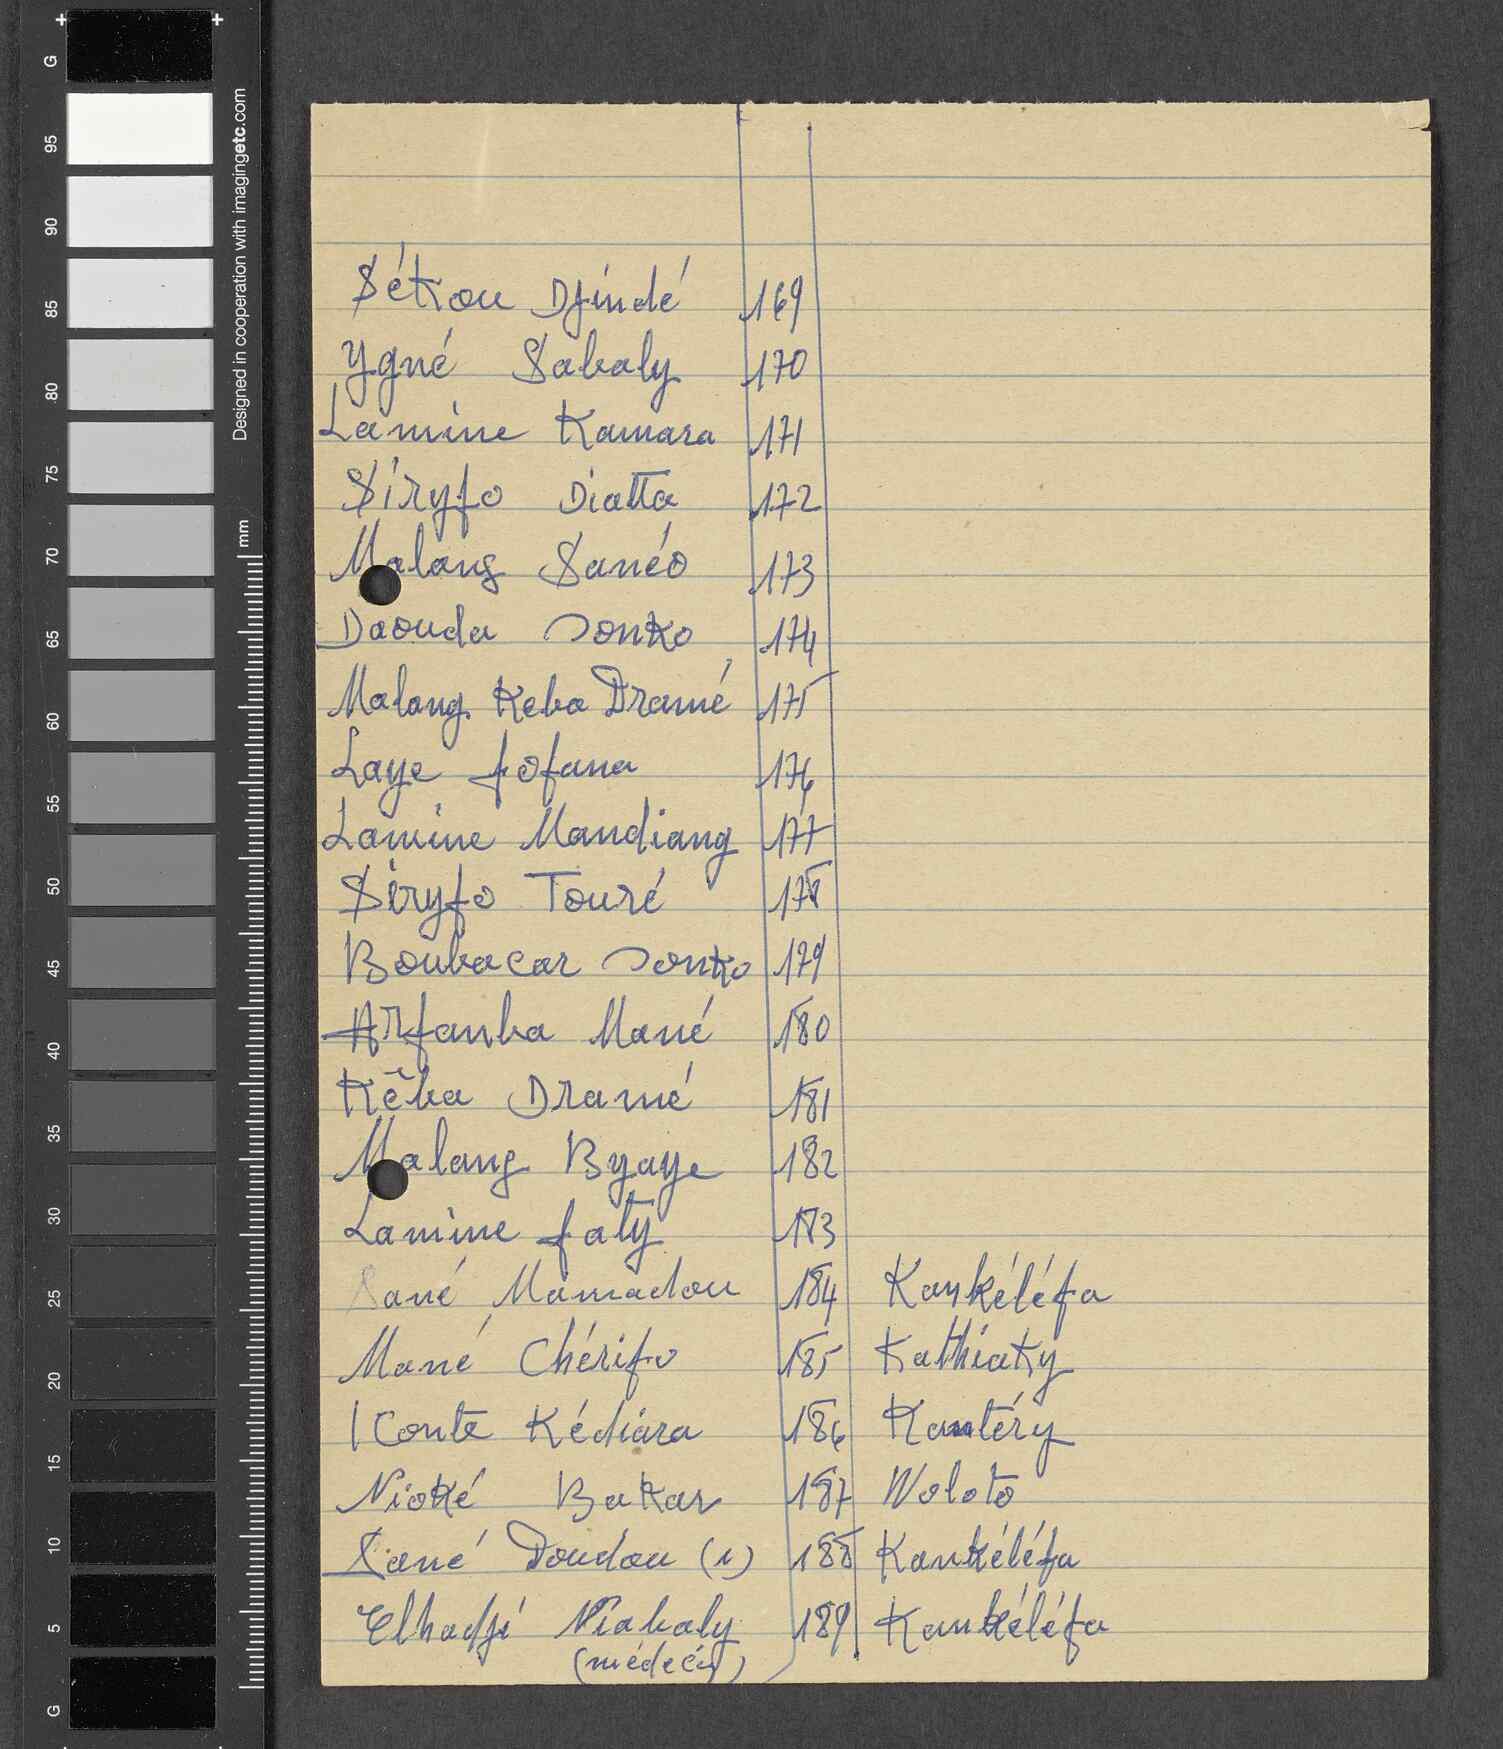 G
95
90
85
80
75
70
65
60
55
50
45
40
35
30
25
20
15
10
5
G
Designed in cooperation with imagingetc.com
mm
Sékou Djindé 169
Ygné Sabaly 170
Lamine Kamara 171
Siryfo Diatta 172
Malang Sanéo 173
Daouda Sonko 174
Malang Keba Dramé 175
Laye fofana 176
Lamine Mandiang 177
Siryfo Touré 178
Boubacar Sonko 179
Arfanba Mané 180
Kêba Dramé 181
Malang Byaye 182
Lamine faty 183
Sané Mamadou 184 Kankéléfa
Mané Chérifo 185 Kathiaky
Conte Kédiara 186 Kantéry
Nioké Bakar 187 Woloto
Sané Doudou (1) 188 Kankéléfa
Elhadji Niabaly 189 Kankéléfa
(médécin)